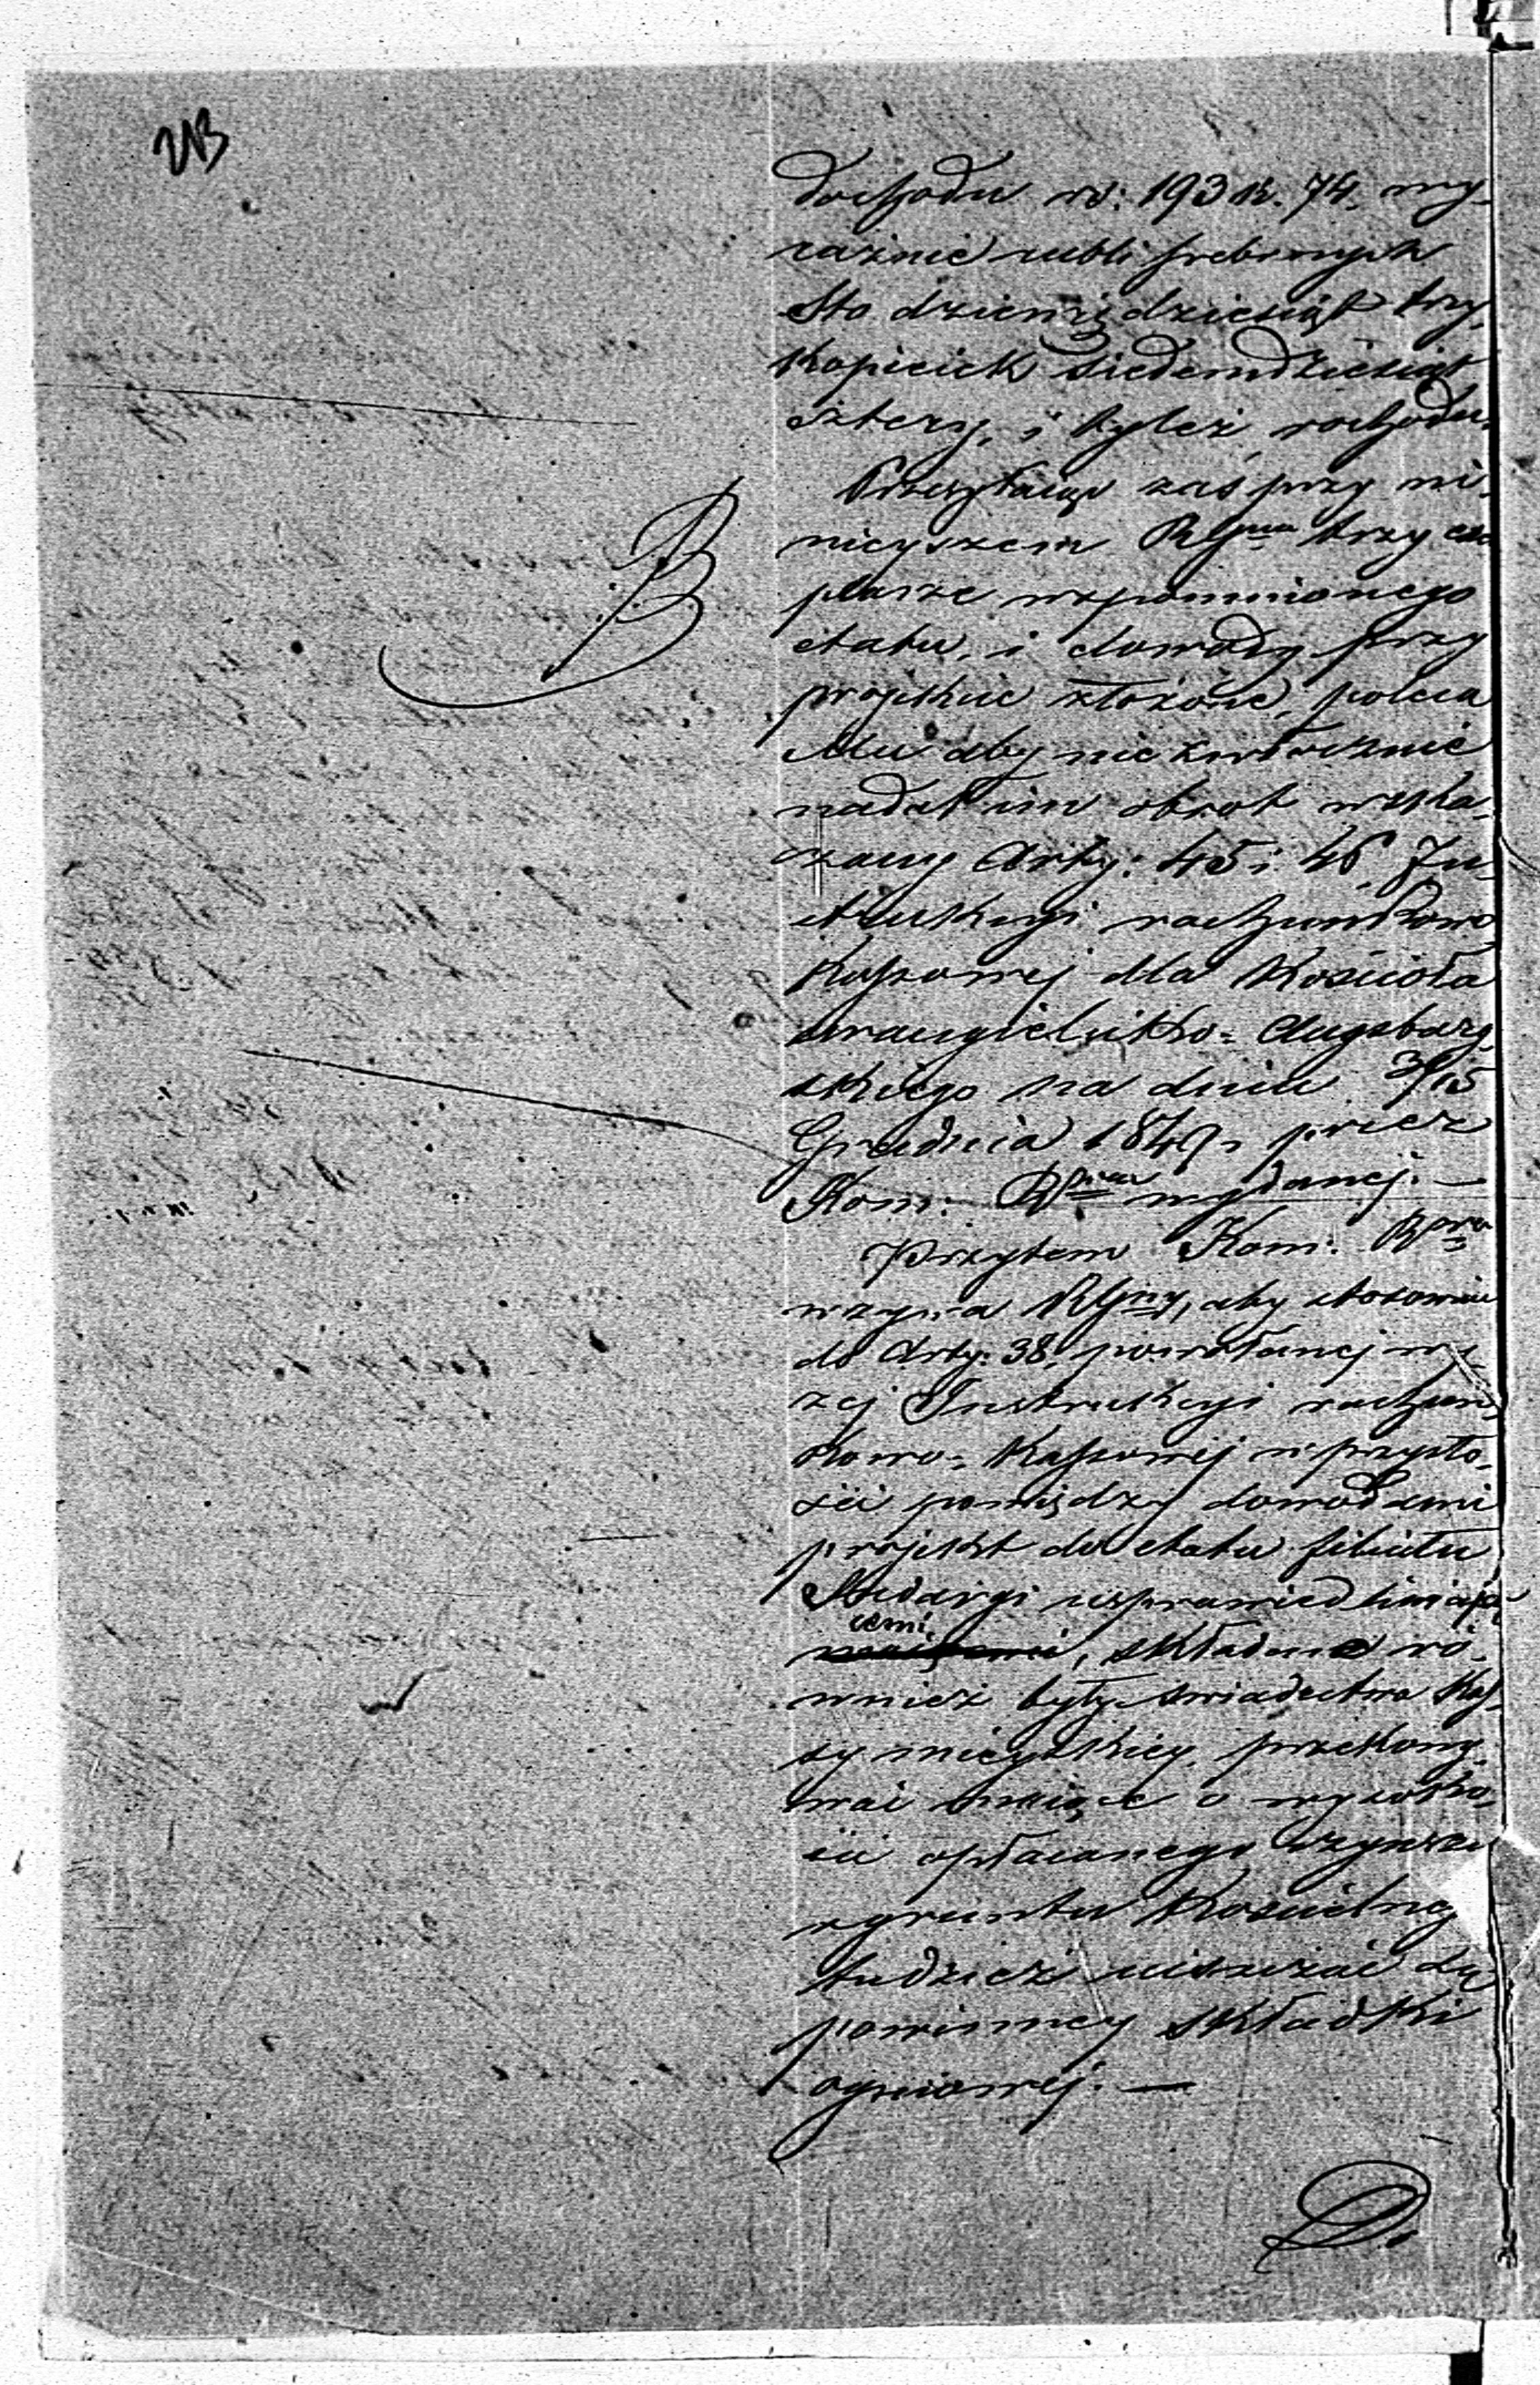 213
dochodu rs: 193 k. 74. wy-
raźnie rubli srebrnych
Sto dziewięćdziesiąt trzy,
Kopieiek Siedemdziesiąt
cztery, i tyleż rozchodu.
Przesyłaiąc zaś przy ni-
nieyszem RGmu trzy exe
plarze wspomnionego
etatu, i dowody przy
projekcie złożone, poleca
Mu aby niezwłocznie
nadał im obrot wska-
zany Arty: 45 i 46, In-
strukcyi rachunkowo
Kassowej dla Kościoła
Ewangielicko-Augsburg-
skiego na dniu 3/15
Grudnia 1849 r przez
Kom: Rz wydanej. —
Przytem Kom: Rz
wzywa RGny, aby stosownie
do Arty: 38, powołanej wy-
żej Instrukcyi rachun-
kowo-Kassowej w przyszło-
ści pomiędzy dowodami
projekt do etatu filiału
usprawiedliwiają
cemi, składane ró-
wnież były świadectwa Kas-
sy mieyskiey, przekony-
wać o wysoko-
ści opłacanego czynszu
z gruntu Kościelneg
tudzież uiszczać się
powinney składki
ogniowej. —